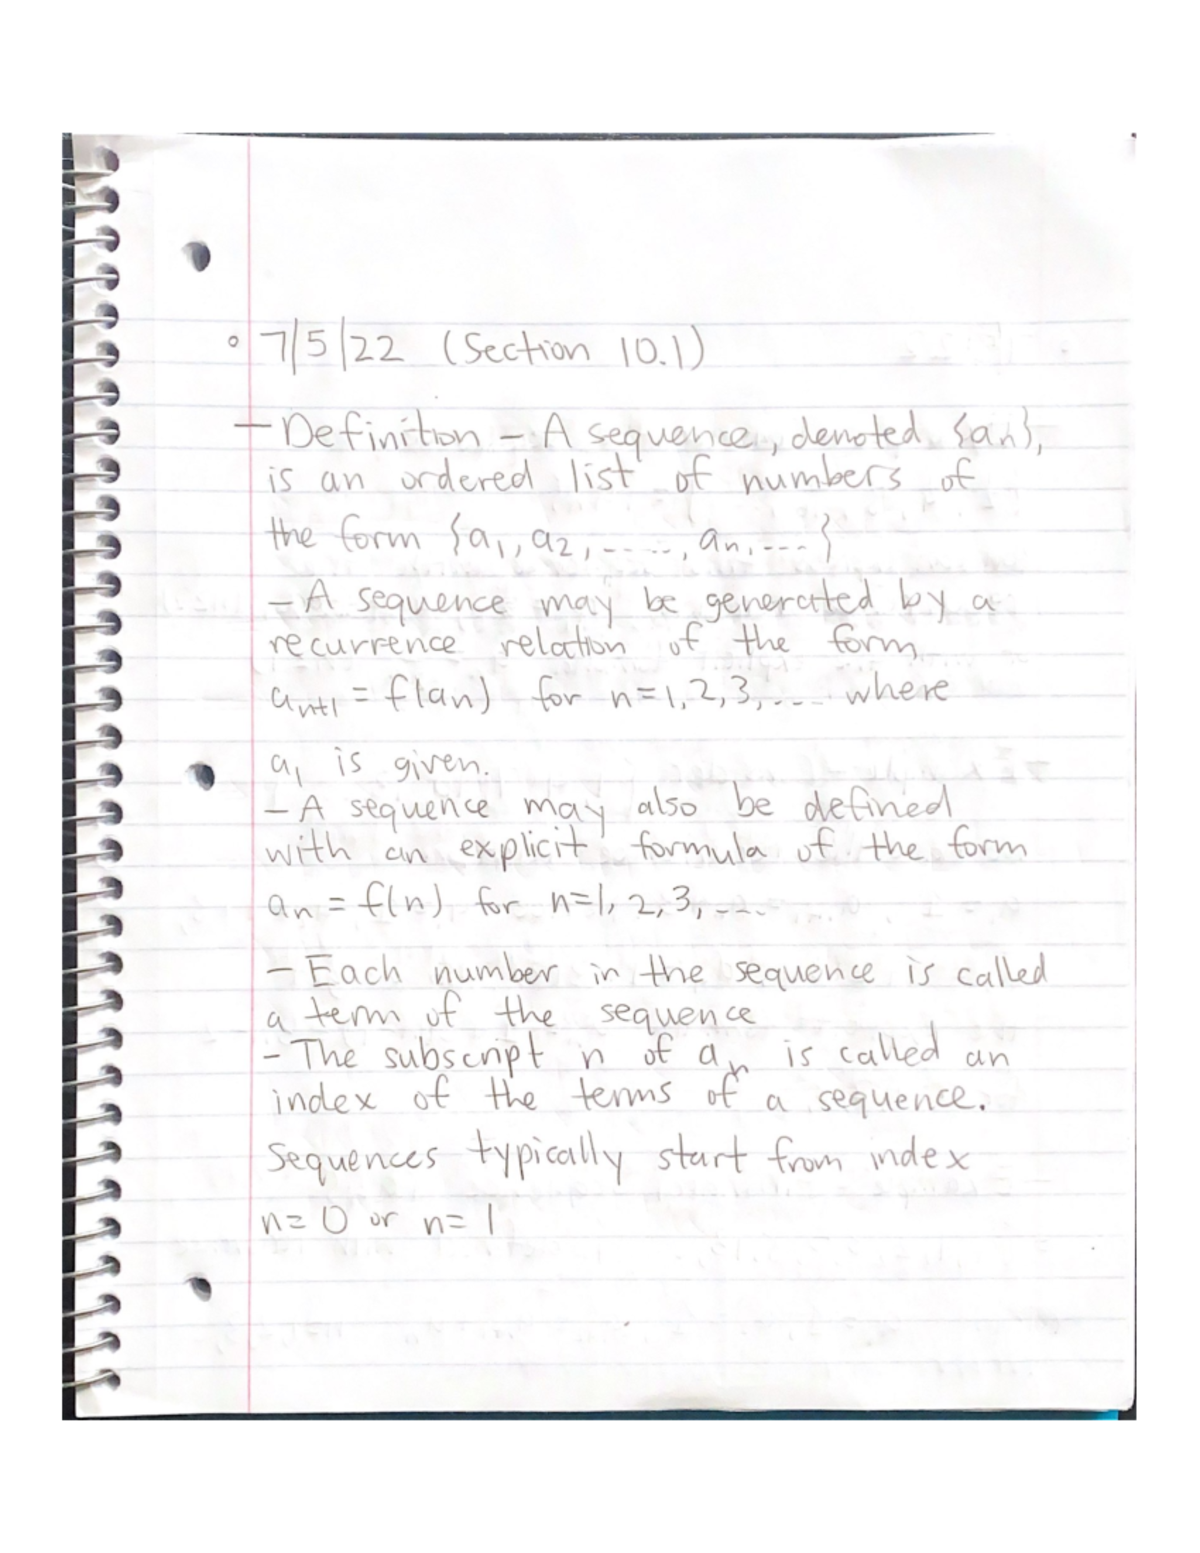 ° 7/5/22 (Section 10.1)
- Definition - A sequence, denoted {an},
is an ordered list of numbers of
the form {a1, a2, ....., an, ....}
- A sequence may be generated by a
recurrence relation of the form
an+1 = f(an) for n=1,2,3,.... where
a1 is given.
- A sequence may also be defined
with an explicit formula of the form
an = f(n) for n=1, 2, 3, ....
- Each number in the sequence is called
a term of the sequence
- The subscript n of an is called an
index of the terms of a sequence.
Sequences typically start from index
n=0 or n=1